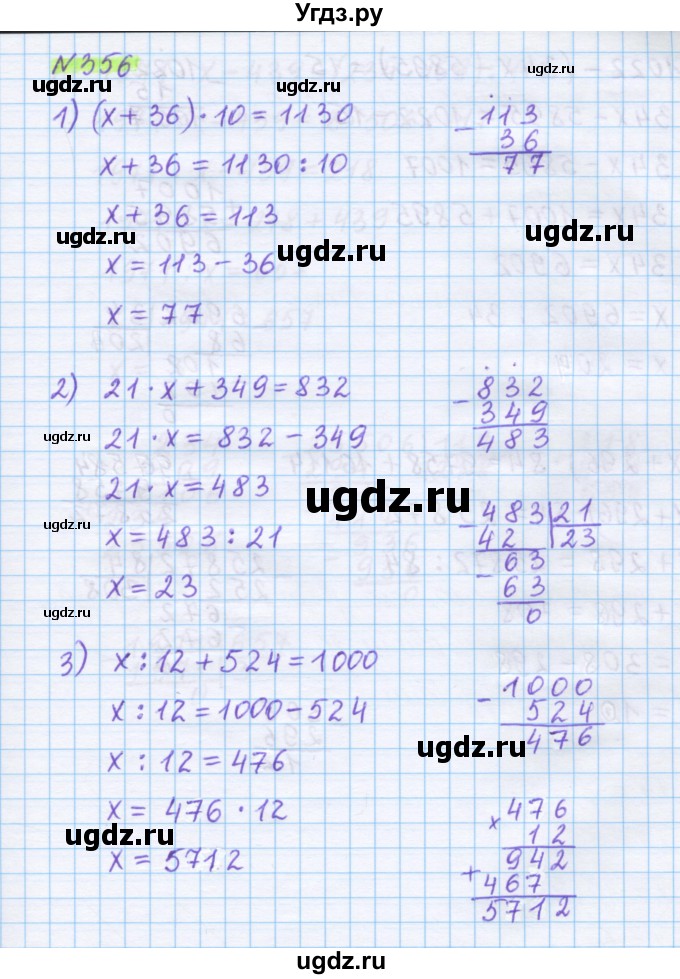 Угдз.ру
N356
ugdz.ru
ugdz.ru
ugdz.ru
1) (x + 36) · 10 = 1130
x + 36 = 1130 : 10
x + 36 = 113
x = 113 - 36
x = 77
- 113
36
77
ugdz.ru
ugdz.ru
ugdz.ru
2) 21 · x + 349 = 832
21 · x = 832 - 349
21 · x = 483
x = 483 : 21
x = 23
- 832
349
483
- 483 21
42 23
- 63
63
0
ugdz.ru
ugdz.ru
ugdz.ru
ugdz.ru
3) x : 12 + 524 = 1000
x : 12 = 1000 - 524
x : 12 = 476
x = 476 · 12
x = 5712
- 1000
524
476
x 476
12
942
+ 467
5712
ugdz.ru
ugdz.ru
ugdz.ru
ugdz.ru